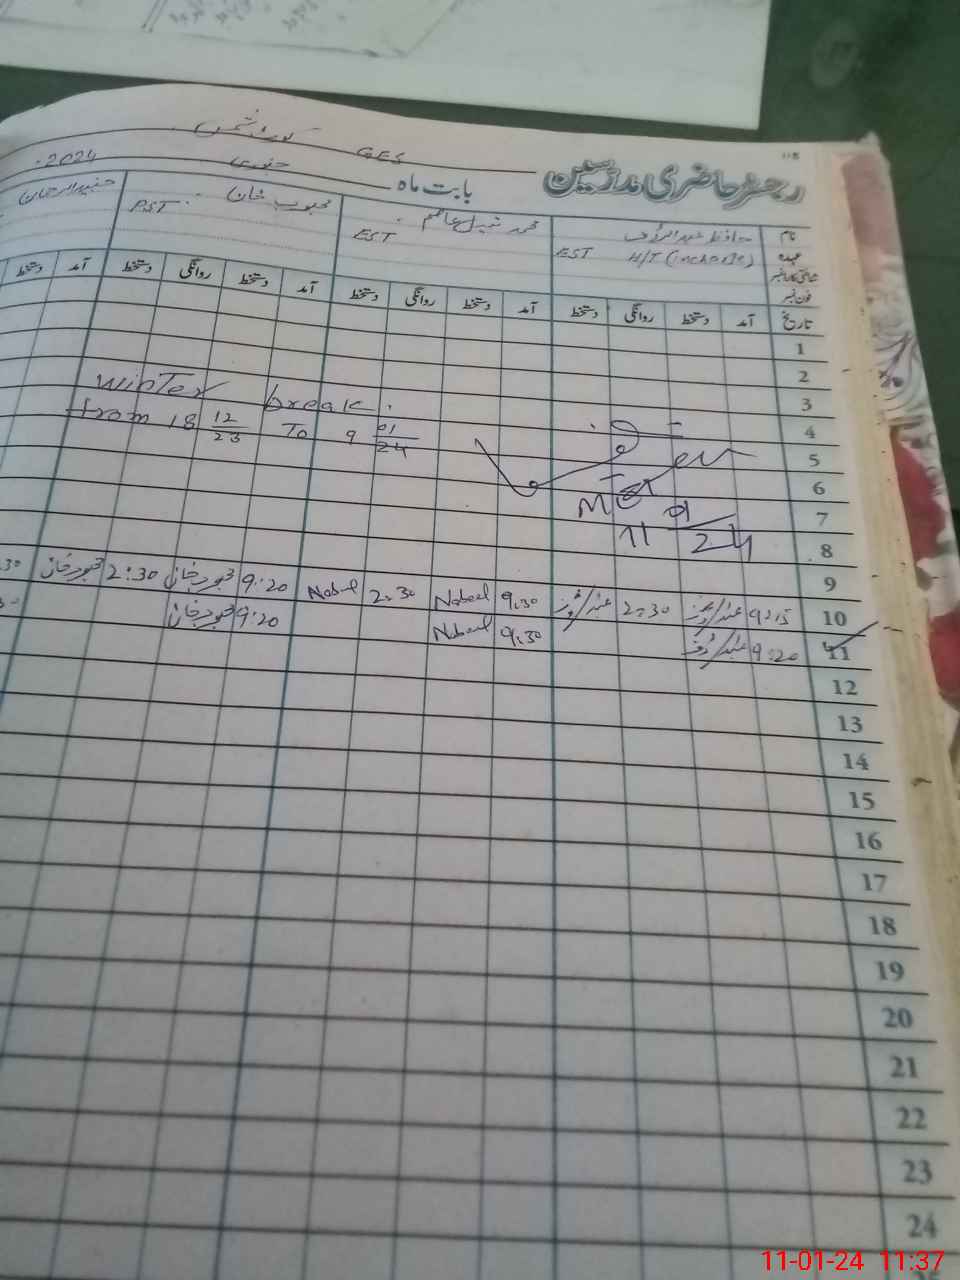 115
GES
رجسٹر حاضری مدرسین
بابت ماہ جنوری 2024
نام حافظ عبدالرؤف محمد نبیل عاصم محبوب خان
عہدہ H/T (incharge) EST EST PST
شناختی کارڈ نمبر
فون نمبر
تاریخ آمد دستخط روانگی دستخط آمد دستخط روانگی دستخط آمد دستخط روانگی دستخط آمد دستخط
1
2
3
winter break.
from 18 12/23 To 9 01/24
4
5
6
7
11 01/24
8
9
10 9:15 2:30 9:30 Nabeel 2:30 Nabeel 9:20 محبوب خان 2:30 محبوب خان
11 9:20 9:30 Nabeel 9:20 محبوب خان
12
13
14
15
16
17
18
19
20
21
22
23
24
11-01-24 11:37